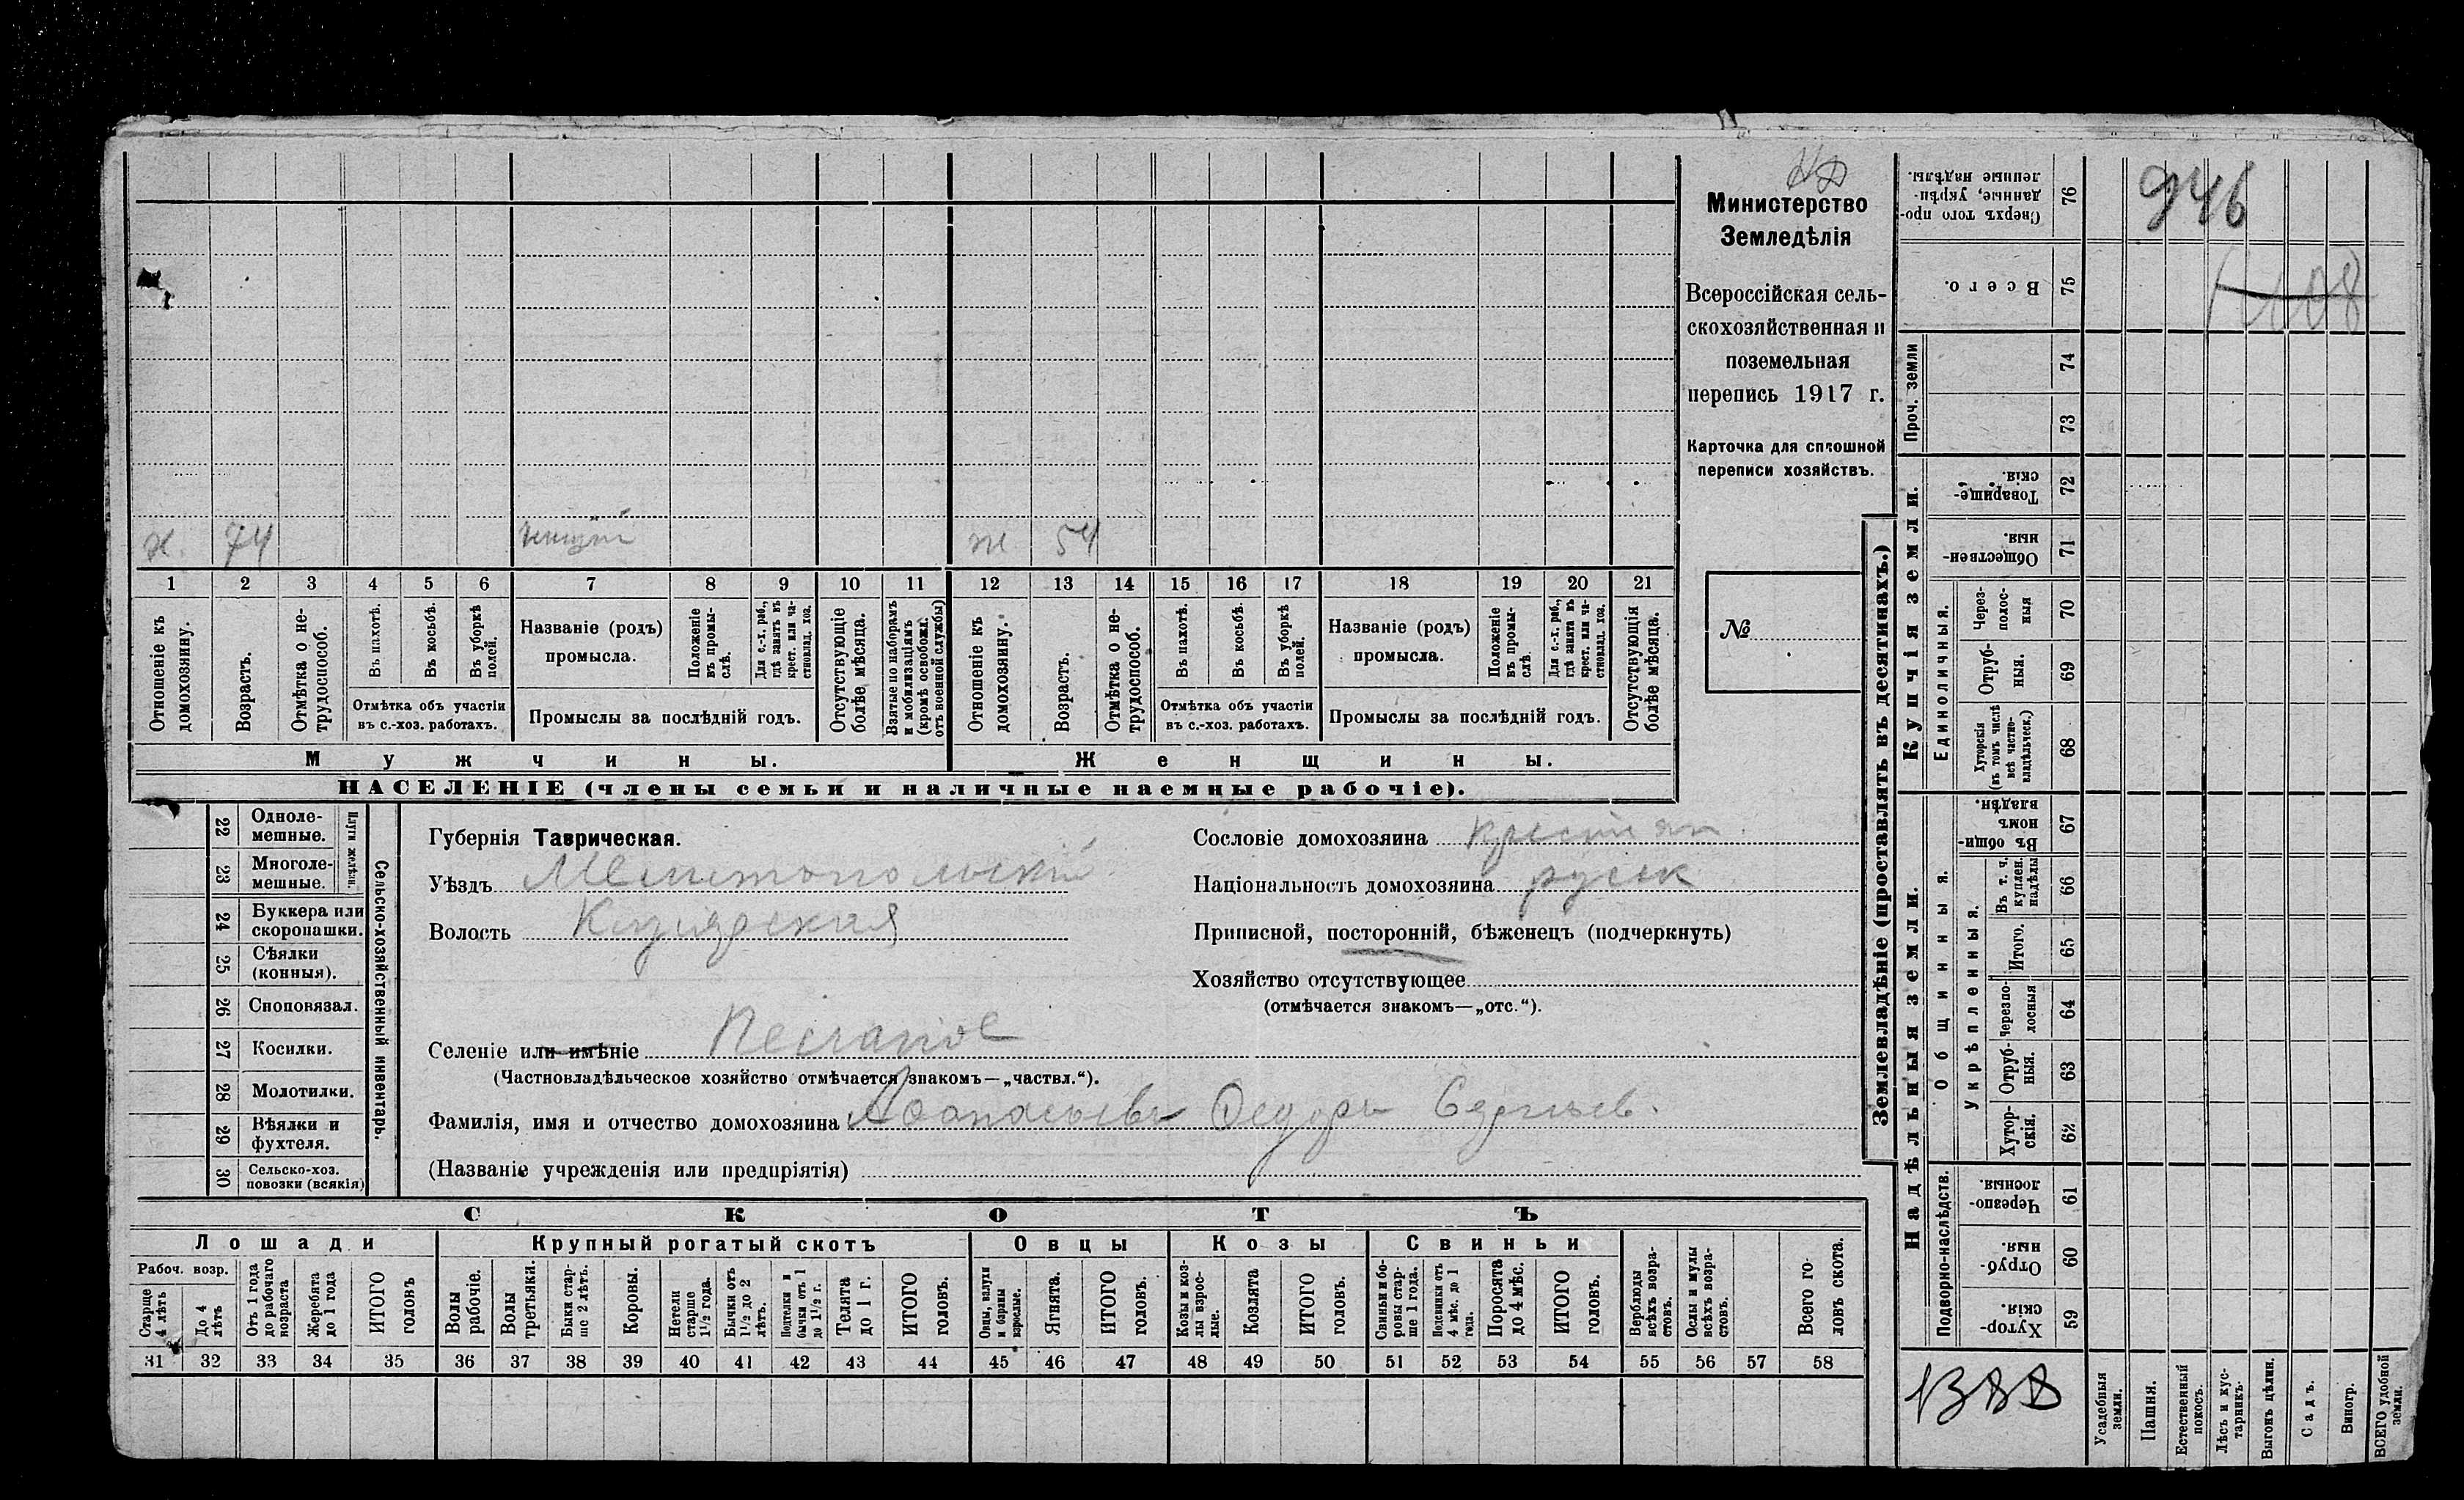 946
Министерство
Земледѣлія
Всероссійская сель-
скохозяйственная и
поземельная
перепись 1917 г.
Карточка для сплошной
переписи хозяйствъ.
№
х. 74 нищій ж 54
1 2 3 4 5 6 7 8 9 10 11 12 13 14 15 16 17 18 19 20 21
Отношеніе къ домохозяину.
Возрастъ.
Отмѣтка о не-трудоспособ.
Въ пахотѣ.
Въ косьбѣ.
Въ уборкѣ полей.
Отмѣтка объ участіи
въ с.-хоз. работахъ.
Названіе (родъ)
промысла.
Положеніе въ промы-слѣ.
Для с.-х. раб., гдѣ занятъ въ крест. или ча-стновлад. хоз.
Промыслы за послѣдній годъ.
Отсутствующіе болѣе мѣсяца.
Взятые по наборамъ и мобилизаціямъ (кромѣ освобожд. отъ военной службы)
Отношеніе къ домохозяину.
Возрастъ.
Отмѣтка о не-трудоспособ.
Въ пахотѣ.
Въ косьбѣ.
Въ уборкѣ полей.
Отмѣтка объ участіи
въ с.-хоз. работахъ.
Названіе (родъ)
промысла.
Положеніе въ промы-слѣ.
Для с.-х. раб., гдѣ занята въ крест. или ча-стновлад. хоз.
Промыслы за послѣдній годъ.
Отсутствующія болѣе мѣсяца.
Мужчины.
Женщины.
НАСЕЛЕНІЕ (члены семьи и наличные наемные рабочіе).
22 Одноле-мешные.
23 Многоле-мешные.
Плуги желѣзн.
24 Буккера или скоропашки.
25 Сѣялки (конныя).
26 Сноповязал.
27 Косилки.
28 Молотилки.
29 Вѣялки и фухтеля.
30 Сельско-хоз. повозки (всякія)
Сельско-хозяйственный инвентарь.
Губернія Таврическая.
Уѣздъ Мелитопольскій
Волость Кизіярская
Селеніе или имѣніе Песчаное
(Частновладѣльческое хозяйство отмѣчается знакомъ—„частвл.“).
Фамилія, имя и отчество домохозяина Афанасьевъ Федоръ Сергѣев.
(Названіе учрежденія или предпріятія)
Сословіе домохозяина крестьян.
Національность домохозяина русск
Приписной, посторонній, бѣженецъ (подчеркнуть)
Хозяйство отсутствующее
(отмѣчается знакомъ—„отс.“).
СКОТЪ
Лошади
Крупный рогатый скотъ
Овцы
Козы
Свиньи
Рабоч. возр.
Старше 4 лѣтъ
До 4 лѣтъ
Отъ 1 года до рабочаго возраста
Жеребята до 1 года
ИТОГО головъ
Волы рабочіе.
Волы третьяки.
Быки стар-ше 2 лѣтъ.
Коровы.
Нетели старше 1½ года.
Бычки отъ 1½ до 2 лѣтъ.
Подтелки и бычки отъ 1 до 1½ г.
Телята до 1 г.
ИТОГО головъ.
Овцы, валухи и бараны взрослые.
Ягнята.
ИТОГО головъ.
Козы и коз-лы взрос-лые.
Козлята
ИТОГО головъ.
Свиньи и бо-ровы стар-ше 1 года.
Подсвинки отъ 4 мѣс. до 1 года.
Поросята до 4 мѣс.
ИТОГО головъ.
Верблюды всѣхъ возра-стовъ.
Ослы и мулы всѣхъ возра-стовъ.
Всего го-ловъ скота.
31 32 33 34 35 36 37 38 39 40 41 42 43 44 45 46 47 48 49 50 51 52 53 54 55 56 57 58
Землевладѣніе (проставлять въ десятинахъ.)
Надѣльныя земли.
Купчія земли.
Проч. земли
Подворно-наслѣдств.
Общинныя.
Укрѣпленныя.
Единоличныя.
76 Сверхъ того про-данные, укрѣп-ленные надѣлы.
75 Всего.
74
73
72 Товарище-скія.
71 Обществен-ныя.
70 Через-полос-ныя
69 Отруб-ныя.
68 Хуторскія (въ томъ числѣ всѣ частно-владѣльческ.)
67 Въ общин-номъ владѣн.
66 Въ т. ч. куплен. надѣлы
65 Итого.
64 Черезпо-лосныя
63 Отруб-ныя.
62 Хутор-скія.
61 Черезпо-лосныя.
60 Отруб-ныя.
59 Хутор-скія
Усадебныя земли.
Пашня.
Естественный покосъ.
Лѣсъ и кус-тарникъ.
Выгонъ цѣлин.
Садъ.
Виногр.
ВСЕГО удобной земли.